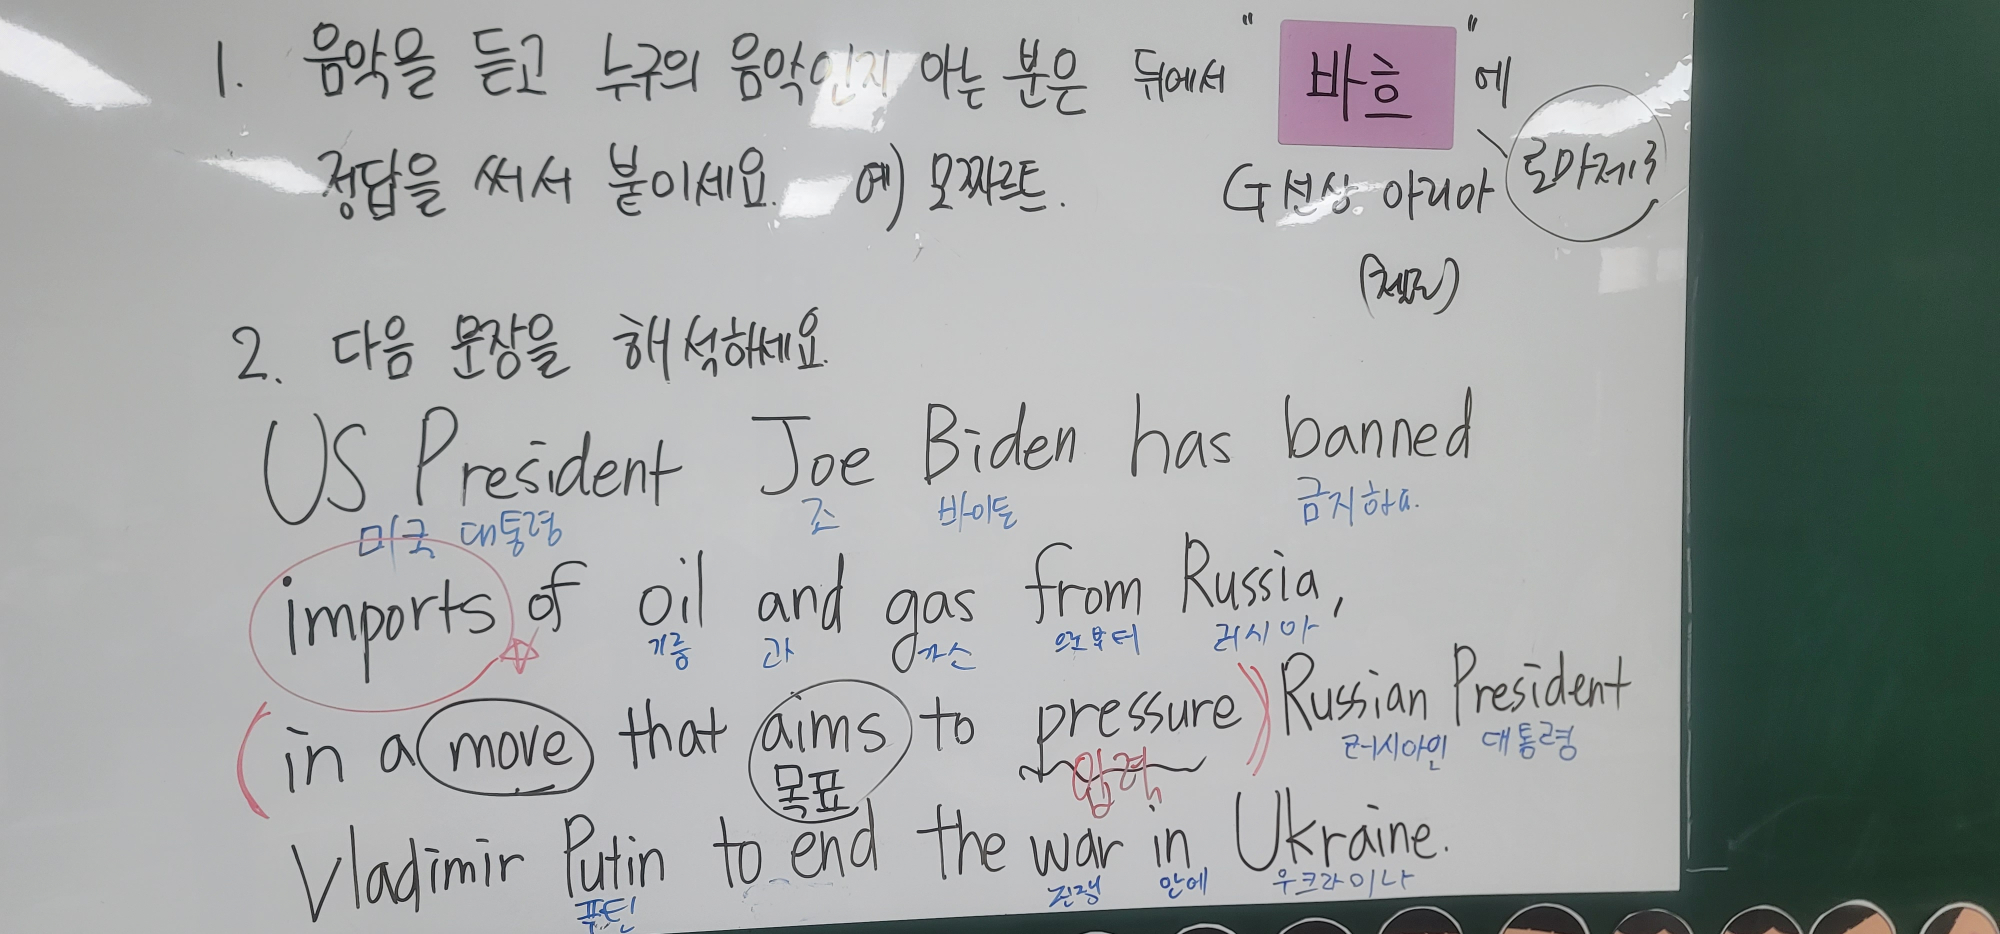 1. 음악을 듣고 누구의 음악인지 아는 분은 뒤에서 " 바흐 "에
정답을 써서 붙이세요. 예) 모짜르트.
G선상 아리아
(첼로)
2. 다음 문장을 해석하세요.
US President Joe Biden has banned
미국 대통령 조 바이든 금지하다.
imports of oil and gas from Russia,
기름 과 가스 으로부터 러시아
in a move that aims to pressure Russian President
목표 압력 러시아인 대통령
Vladimir Putin to end the war in Ukraine.
푸틴 전쟁 안에 우크라이나